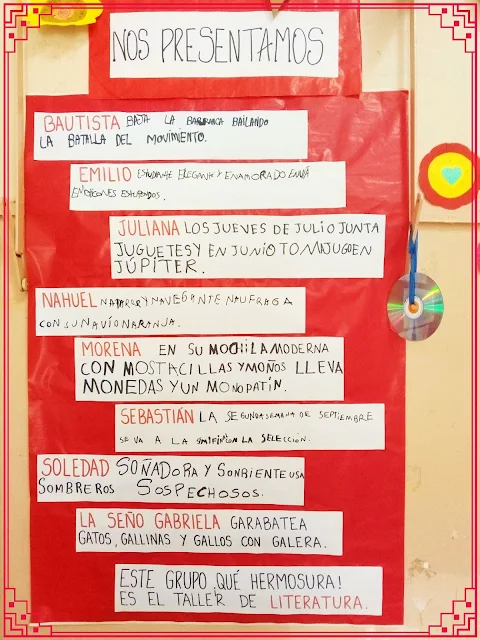 NOS PRESENTAMOS
BAUTISTA BAJA LA BARRANCA BAILANDO
LA BATALLA DEL MOVIMIENTO.
EMILIO ESTUDIANTE ELEGANTE Y ENAMORADO ENVIA
EMOTICONES ESTUPENDOS.
JULIANA LOS JUEVES DE JULIO JUNTA
JUGUETES Y EN JUNIO TOMA JUGO EN
JÚPITER.
NAHUEL NAVEGANTE NAUFRAGA
CON SU NAVÍO NARANJA.
MORENA EN SU MOCHILA MODERNA
CON MOSTACILLAS Y MOÑOS LLEVA
MONEDAS Y UN MONOPATÍN.
SEBASTIÁN LA SEGUNDA SEMANA DE SEPTIEMBRE
SE VA A LA CON LA SELECCIÓN.
SOLEDAD SOÑADORA Y SONRIENTE USA
SOMBREROS SOSPECHOSOS.
LA SEÑO GABRIELA GARABATEA
GATOS, GALLINAS Y GALLOS CON GALERA.
ESTE GRUPO QUÉ HERMOSURA!
ES EL TALLER DE LITERATURA.